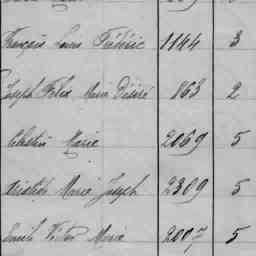 François Louis Frédéric 1144 3
Joseph Félix Marie Désiré 863 2
Célestin Marie 2069 5
Aristide Marie Joseph 2309 5
Emile Victor Marie 2007 5